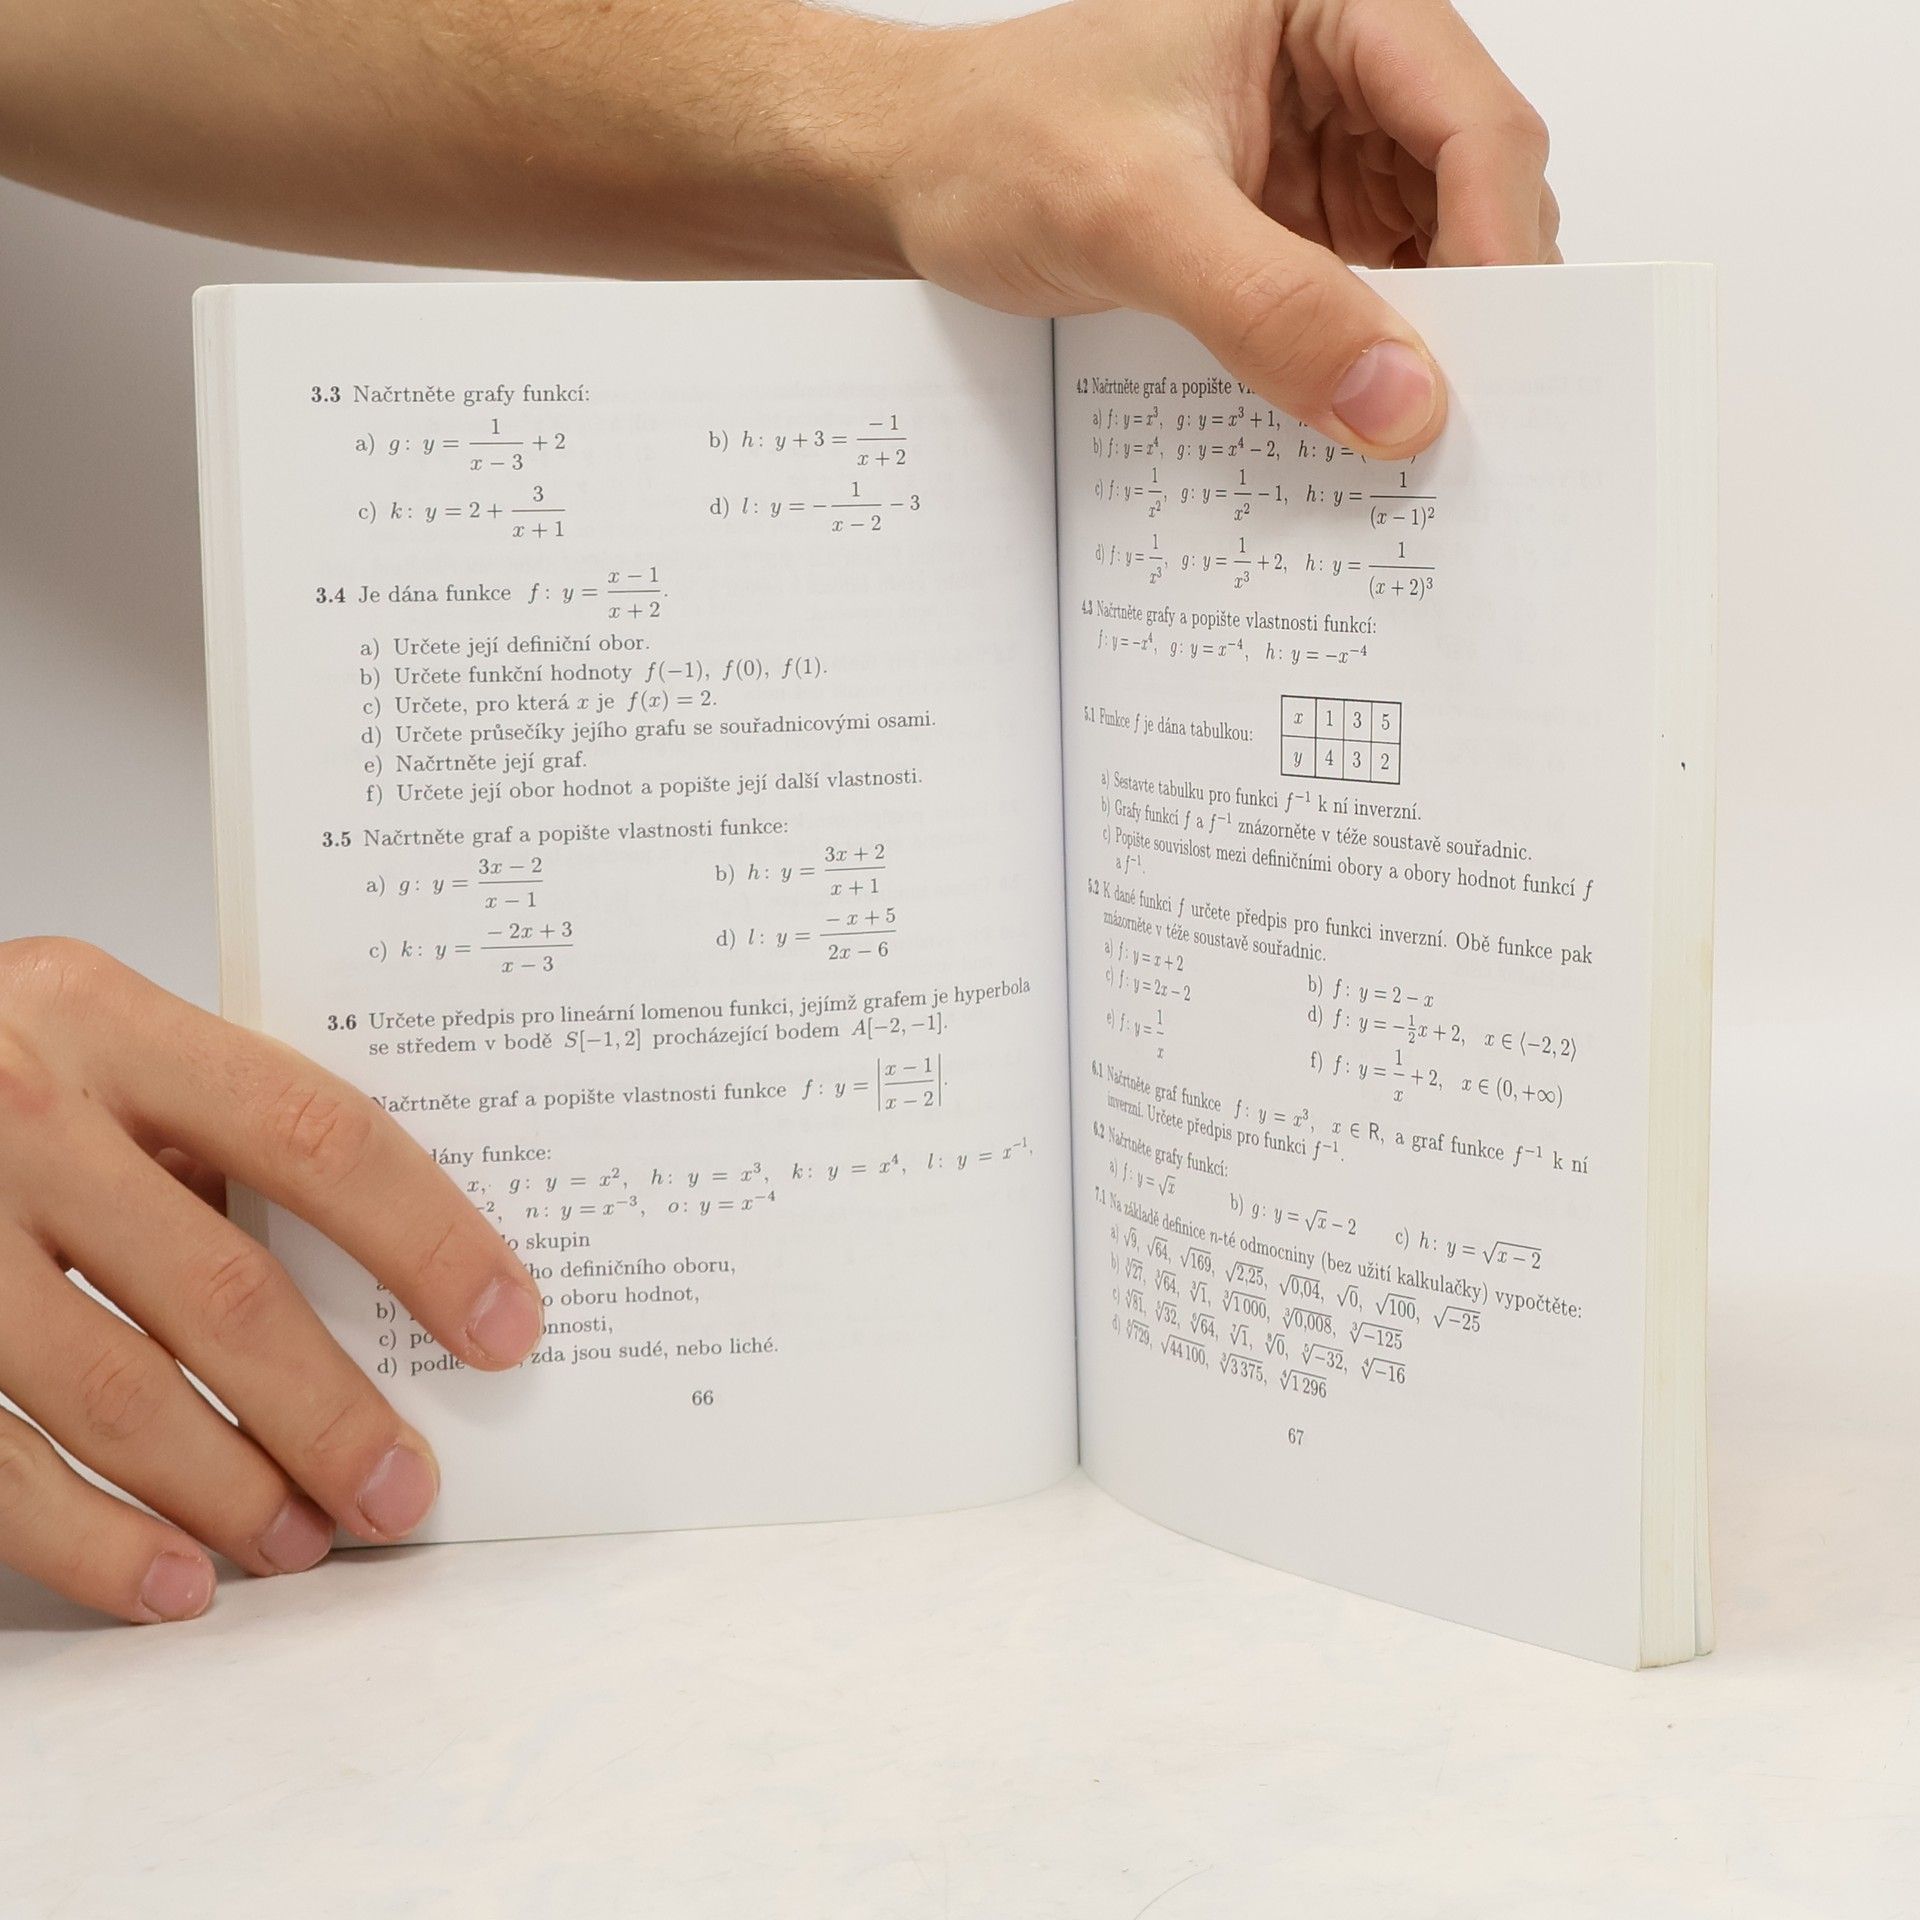 3.3 Načrtněte grafy funkcí:
a) g: y = 1/(x − 3) + 2 b) h: y + 3 = −1/(x + 2)
c) k: y = 2 + 3/(x + 1) d) l: y = −1/(x − 2) − 3
3.4 Je dána funkce f: y = (x − 1)/(x + 2).
a) Určete její definiční obor.
b) Určete funkční hodnoty f(−1), f(0), f(1).
c) Určete, pro která x je f(x) = 2.
d) Určete průsečíky jejího grafu se souřadnicovými osami.
e) Načrtněte její graf.
f) Určete její obor hodnot a popište její další vlastnosti.
3.5 Načrtněte graf a popište vlastnosti funkce:
a) g: y = (3x − 2)/(x − 1) b) h: y = (3x + 2)/(x + 1)
c) k: y = (−2x + 3)/(x − 3) d) l: y = (−x + 5)/(2x − 6)
3.6 Určete předpis pro lineární lomenou funkci, jejímž grafem je hyperbola
se středem v bodě S[−1, 2] procházející bodem A[−2, −1].
Načrtněte graf a popište vlastnosti funkce f: y = |(x − 1)/(x − 2)|.
dány funkce:
x, g: y = x², h: y = x³, k: y = x⁴, l: y = x⁻¹,
⁻², n: y = x⁻³, o: y = x⁻⁴
skupin
definičního oboru,
b) oboru hodnot,
c)
d) podle zda jsou sudé, nebo liché.
66
4.2 Načrtněte graf a popište
a) f: y = x³, g: y = x³ + 1,
b) f: y = x⁴, g: y = x⁴ − 2, h: y =
c) f: y = 1/x², g: y = 1/x² − 1, h: y = 1/(x − 1)²
d) f: y = 1/x³, g: y = 1/x³ + 2, h: y = 1/(x + 2)³
4.3 Načrtněte grafy a popište vlastnosti funkcí:
f: y = −x⁴, g: y = x⁻⁴, h: y = −x⁻⁴
5.1 Funkce f je dána tabulkou:
x 1 3 5
y 4 3 2
a) Sestavte tabulku pro funkci f⁻¹ k ní inverzní.
b) Grafy funkcí f a f⁻¹ znázorněte v téže soustavě souřadnic.
c) Popište souvislost mezi definičními obory a obory hodnot funkcí f
a f⁻¹.
5.2 K dané funkci f určete předpis pro funkci inverzní. Obě funkce pak
znázorněte v téže soustavě souřadnic.
a) f: y = x + 2 b) f: y = 2 − x
c) f: y = 2x − 2 d) f: y = −½x + 2, x ∈ ⟨−2, 2⟩
e) f: y = 1/x f) f: y = 1/x + 2, x ∈ (0, +∞)
6.1 Načrtněte graf funkce f: y = x³, x ∈ R, a graf funkce f⁻¹ k ní
inverzní. Určete předpis pro funkci f⁻¹.
6.2 Načrtněte grafy funkcí:
a) f: y = √x b) g: y = √x − 2 c) h: y = √(x − 2)
7.1 Na základě definice n-té odmocniny (bez užití kalkulačky) vypočtěte:
a) √9, √64, √169, √2,25, √0,04, √0, √100, √−25
b) ∛27, ∛64, ∛1, ∛1 000, ∛0,008, ∛−125
c) ∜81, ⁵√32, ⁶√64, ⁷√1, ⁸√0, ⁵√−32, ∜−16
d) ⁶√729, √44 100, ∛3 375, ∜1 296
67